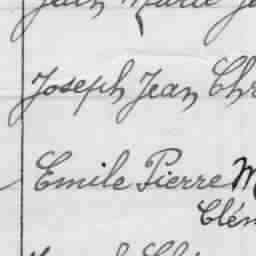 Jean Marie Je
Joseph Jean Chr
Emile Pierre M
Clém